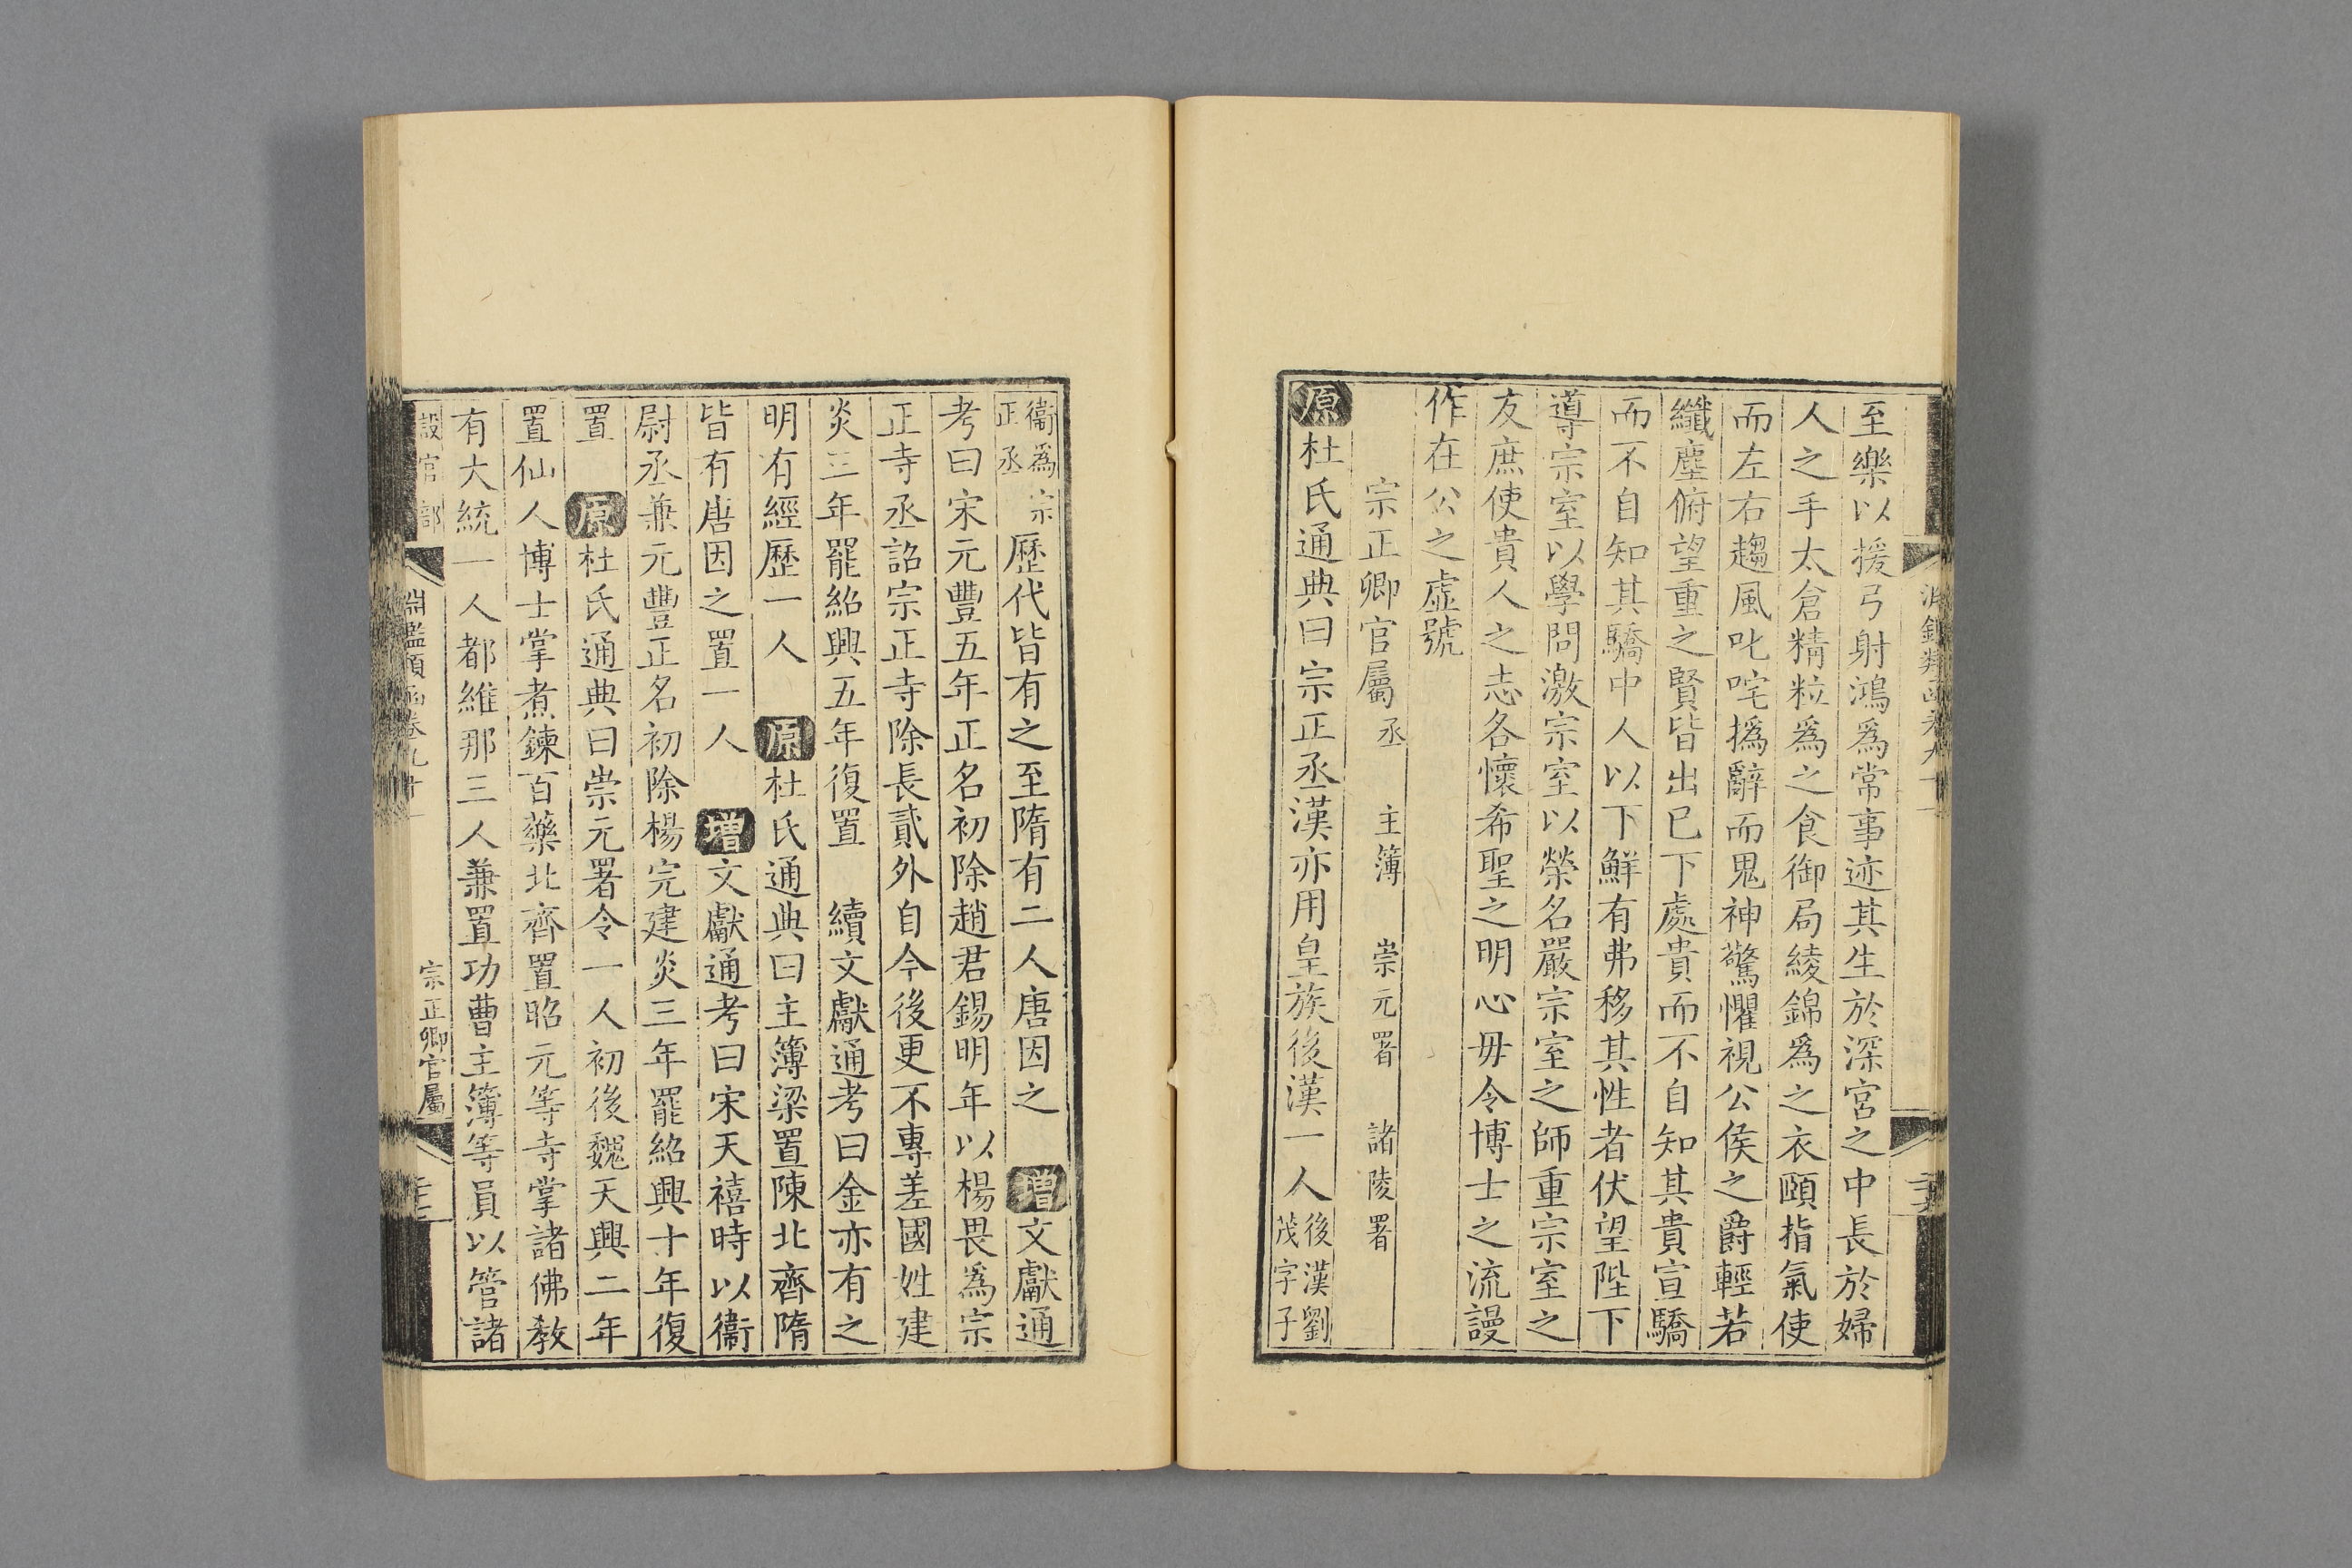 至樂以援弓射鴻爲常事迹其生於深宮之中長於婦
人之手太倉精粒爲之食御局綾錦爲之衣頤指氣使
而左右趨風叱咤撝辭而鬼神驚懼視公侯之爵輕若
纖塵俯望重之賢皆出已下處貴而不自知其貴宣驕
而不自知其驕中人以下鮮有弗移其性者伏望陛下
導宗室以學問激宗室以榮名嚴宗室之師重宗室之
友庶使貴人之志各懷希聖之明心毋令博士之流謾
作在公之虛號
宗正卿官屬 丞 主簿 崇元署 諸陵署
原杜氏通典曰宗正丞漢亦用皇族後漢一人後漢劉茂字子
衞爲宗正丞歷代皆有之至隋有二人唐因之 增文獻通
考曰宋元豐五年正名初除趙君錫明年以楊畏爲宗
正寺丞詔宗正寺除長貳外自今後更不專差國姓建
炎三年罷紹興五年復置 續文獻通考曰金亦有之
明有經歷一人 原杜氏通典曰主簿梁置陳北齊隋
皆有唐因之置一人 增文獻通考曰宋天禧時以衞
尉丞兼元豐正名初除楊完建炎三年罷紹興十年復
置 原杜氏通典曰崇元署令一人初後魏天興二年
置仙人博士掌煮鍊百藥北齊置昭元等寺掌諸佛教
有大統一人都維那三人兼置功曹主簿等員以管諸
設官部 淵鑑類函卷九十一 宗正卿官屬